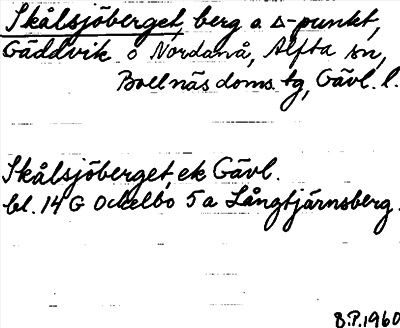 Skålsjöberget, berg o Δ-punkt,
Gäddvik o Nordanå, Alfta sn,
Bollnäs doms. tg, Gävl. l.
Skålsjöberget, ek Gävl.
bl. 14 G Ockelbo 5 a Långtjärnsberg.
8.P.1960